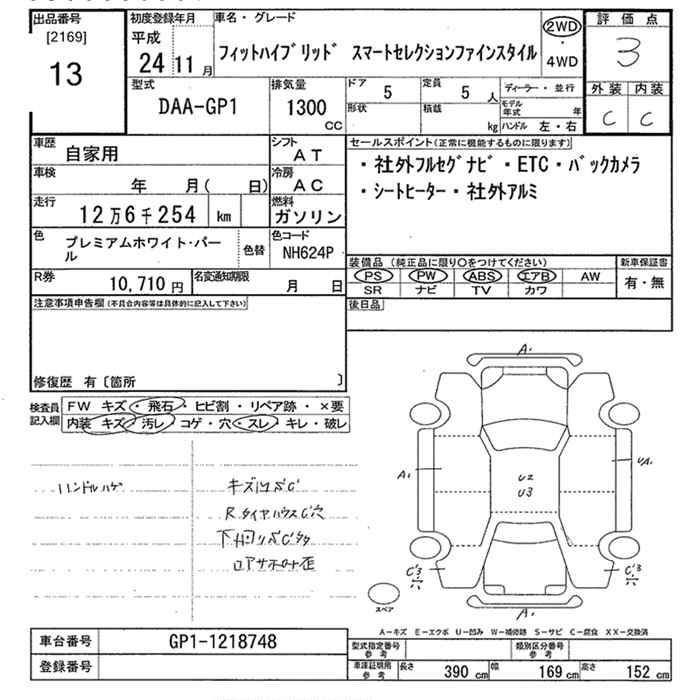 出品番号 初度登録年月 車名・グレード 2WD 評価点
[2169] 平成 ・ 3
13 24 11月 フィットハイブリッド スマートセレクションファインスタイル 4WD
型式 排気量 ドア 5 定員 5 人 ディーラー・並行 外装 内装
DAA-GP1 1300 cc 形状 積載 kg モデル年式 年 C C
ハンドル 左・右
車歴 自家用 シフト AT セールスポイント(正常に機能するものに限ります)
車検 年 月( 日) 冷房 AC ・社外フルセグナビ・ETC・バックカメラ
走行 12万6千254 km 燃料 ガソリン ・シートヒーター・社外アルミ
色 プレミアムホワイト・パール 色替 色コード NH624P
装備品(純正品に限り○をつけてください) 新車保証書
PS PW ABS エアB AW 有・無
SR ナビ TV カワ
R券 10,710円 名変通知期限 月 日
後日品
注意事項申告欄(不具合内容等は具体的に記入して下さい)
修復歴 有〔箇所 〕
検査員記入欄 FW キズ・飛石・ヒビ割・リペア跡・×要
内装 キズ・汚レ・コゲ・穴・スレ・キレ・破レ
ハンドルハゲ
キズ凹サビC
RタイヤハウスC穴
下廻リサビC多々
ロアサポート歪
A₁
A₁
U2
U3
UA₁
C'3
穴
C'3
穴
A₁
スペア
A-キズ E-エクボ U-凹み W-補修跡 S-サビ C-腐食 XX-交換済
車台番号 GP1-1218748
登録番号
型式指定番号 参考 類別区分番号 参考
車庫証明用 参考 長さ 390 cm 幅 169 cm 高さ 152 cm